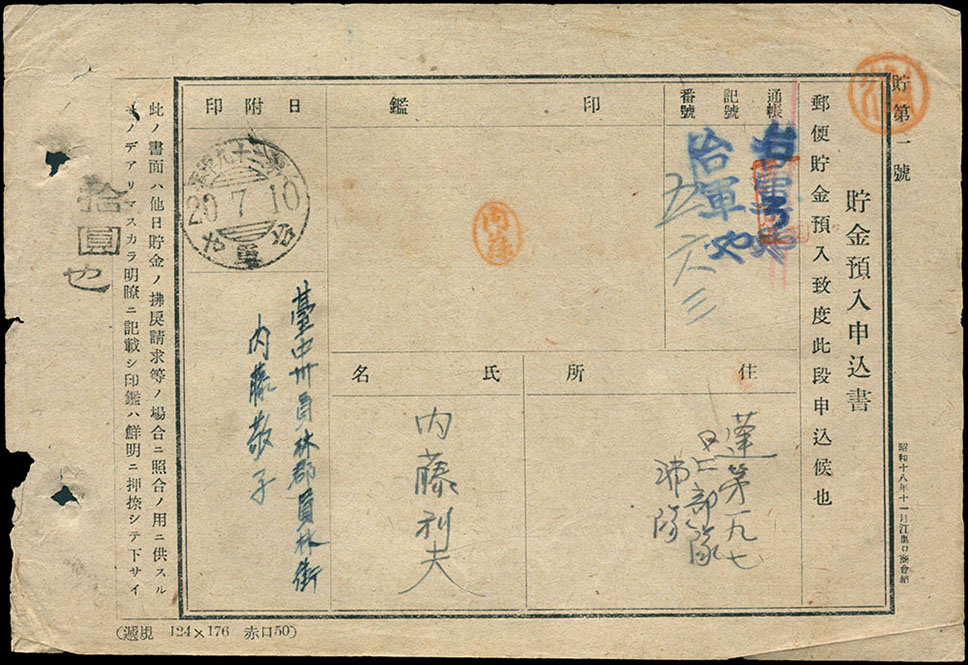 貯第一號
貯金預入申込書
郵便貯金預入致度此段申込候也
昭和十八年十一月江里口商會納
通帳
記號
番號
台軍
五六三
印鑑
内藤
住所
蓮第一九七
部隊
隊
氏名
内藤利夫
日附印
20 7 10
臺中州員林郡員林街
内藤敬子
此ノ書面ハ他日貯金ノ拂戾請求等ノ場合ニ照合ノ用ニ供スル
モノデアリマスカラ明瞭ニ記載シ印鑑ハ鮮明ニ押捺シテ下サイ
拾圓也
(遞規 124×176 赤口50)